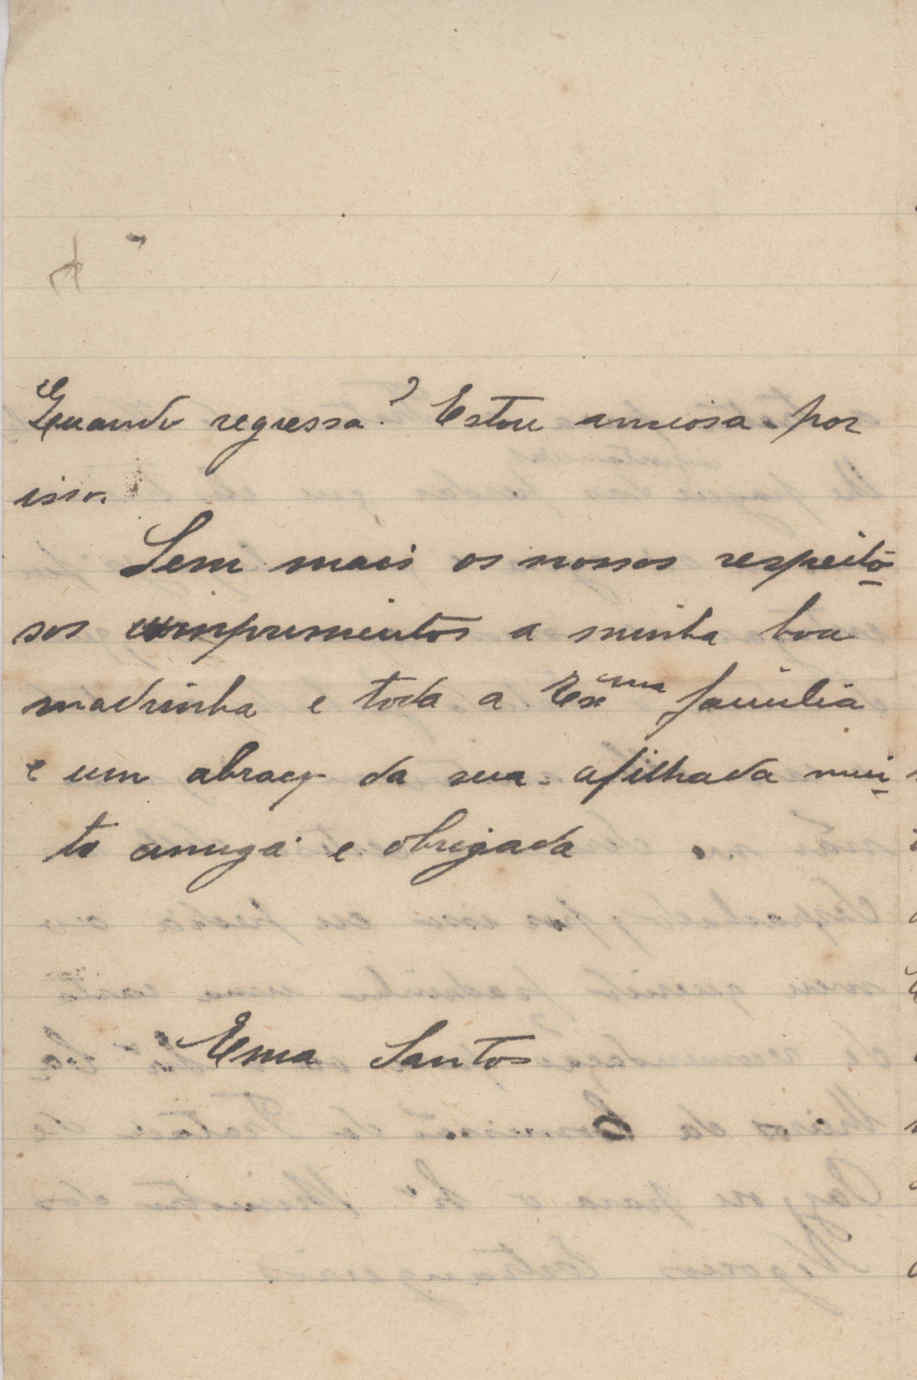 Quando regressa? Estou anciosa por
isso.
Sem mais os nossos respeito-
sos cumprimentos a minha boa
madrinha e toda a Exma familia
e um abraço da sua afilhada mui-
to amiga e obrigada
Ema Santos